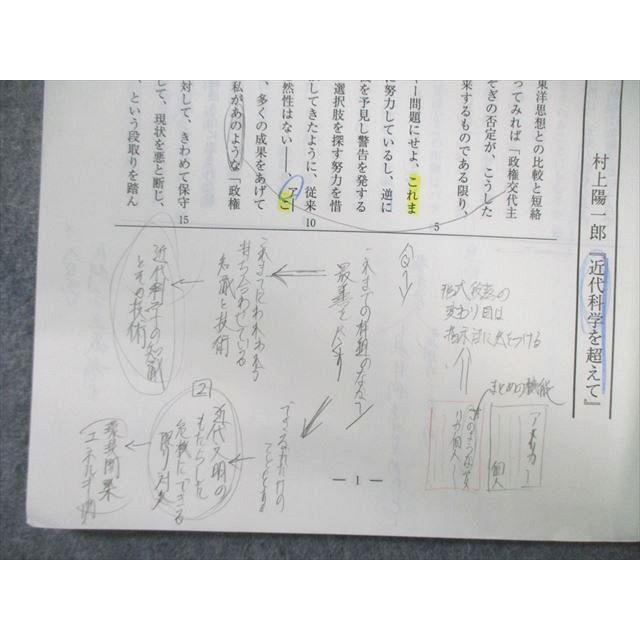 村上陽一郎『近代科学を超えて』
東洋思想との比較と短絡
ってみれば「政権交代主
ぞぎの否定が、こうした
来するものである限り、
5
ー問題にせよ、これま
に努力しているし、逆に
を予見し警告を発する
選択肢を探す努力を惜
してきたように、従来
10
然性はない――、アこ
、多くの成果をあげて
私があのような「政権
対して、きわめて保守
15
して、現状を悪と断じ、
、という段取りを踏ん
形式段落の
変わり目は
指示語に気をつける
まとめの機能
個人
これまでの枠組のなかで
最善を尽す
これまでにわれわれが
持ち合わせている
知識と技術
近代科学の知識
とその技術
できるだけの
ことをする
2
近代文明の
もたらした
危機にできる
限り対処
環境問題
エネルギー
— 1 —